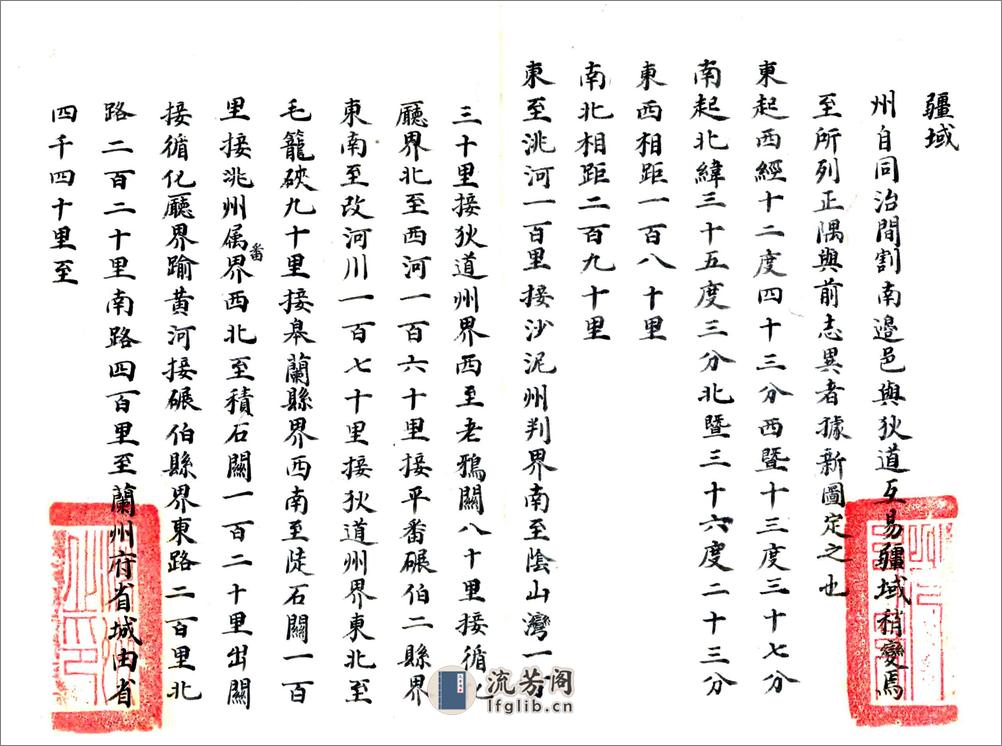 疆域
州自同治間割南邉邑與狄道互易疆域稍變焉
至所列正隅與前志異者據新圖定之也
東起西經十二度四十三分西暨十三度三十七分
南起北緯三十五度三分北暨三十六度二十三分
東西相距一百八十里
南北相距二百九十里
東至洮河一百里接沙泥州判界南至陰山灣一百
三十里接狄道州界西至老鴉關八十里接循化
廳界北至西河一百六十里接平番碾伯二縣界
東南至改河川一百七十里接狄道州界東北至
毛籠硤九十里接皋蘭縣界西南至陡石關一百
里接洮州属番界西北至積石關一百二十里出關
接循化廳界踰黄河接碾伯縣界東路二百里北
路二百二十里南路四百里至蘭州府省城由省
四千四十里至
流芳阁
lfglib.cn